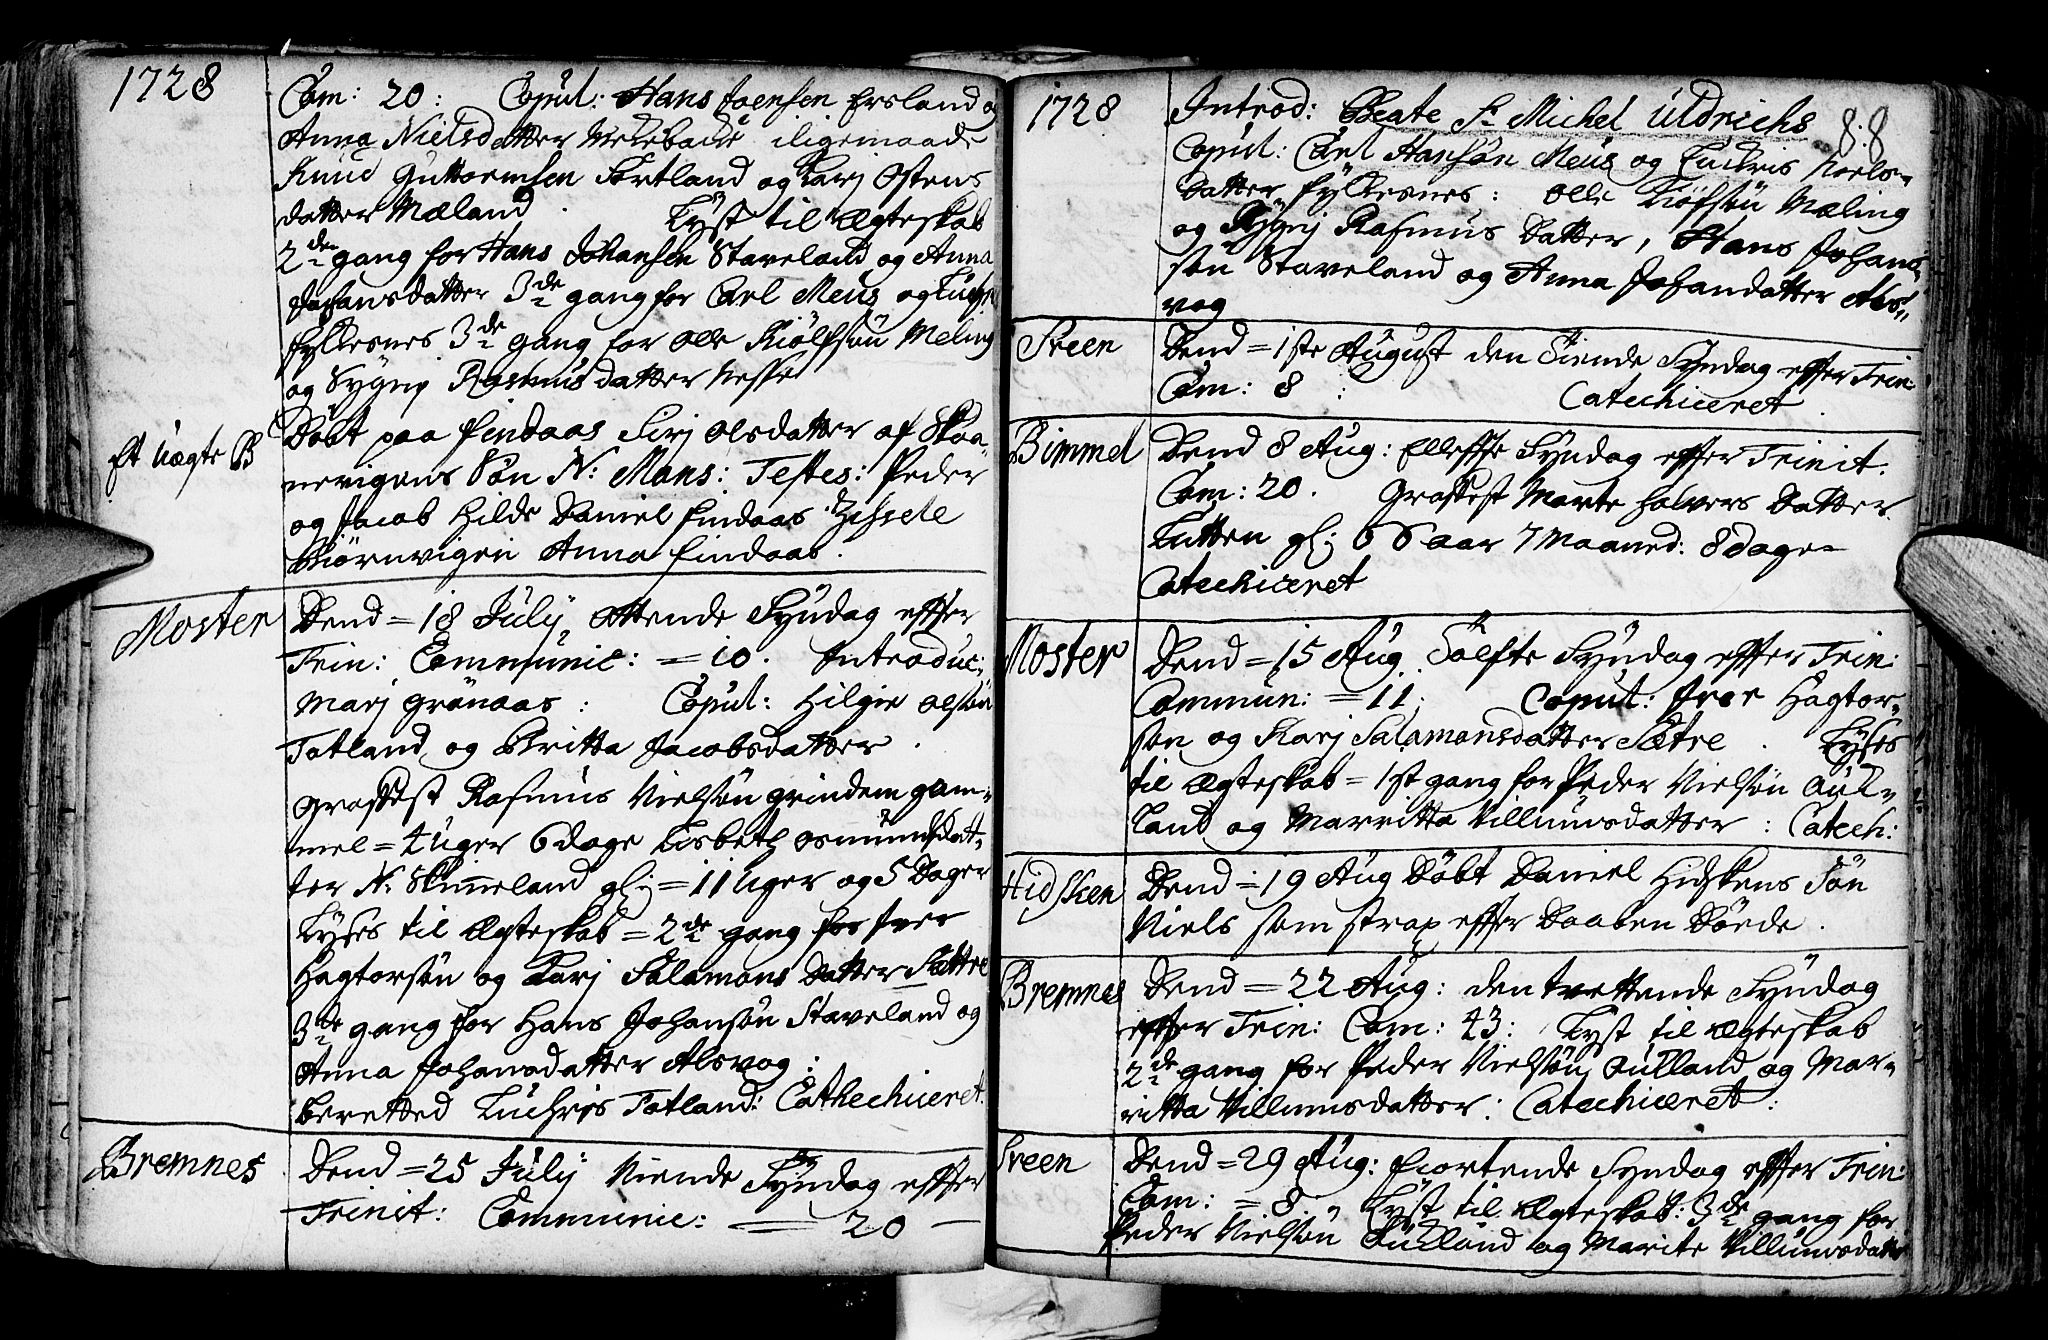 1728
Com: 20: Copul: Hans Joensen Ersland og
Anna Nielsdatter Melebache iligemaade
Knud Guttormsen Tortland og Karj Ostens
datter Mæland. Lyst til Ægteskab
2de gang for Hans Johansen Staveland og Anna
Johansdatter 3de gang for Carl Meus og
Fyllesnes 3de gang for Olle Kiölfsön Meling
og Sygni Rasmus datter Neste
Et uægte B
Döbt paa Findaas Sirj Olsdatter af Skaa-
nevigens Sön N: Mons: Testes: Peder
og Jacob Hilde Daniel Findaas Zissele
Biörnvigen Anna Findaas.
Moster
Dend = 18 July Ottende Syndag effter
Trin: Communic: = 10. Introduc:
Marj Grönaas: Copul: Hilgie Olsön
Totland og Britta Jacobsdatter.
Graffest Rasmus Nielsön Grindem gam-
mel = 4 uger 6 dage Lisbeth Osmundsdat-
ter N: Skimeland gl: = 11 Uger og 5 Dager
Lyses til Ægteskab = 2de gang for Iver
Hagtorsön og Karj Salamons Datter Sættre
3de gang for Hans Johansön Staveland og
Anna Johansdatter Alsvog:
beretted Luchris Totland: Cathechiceret.
Bremnes
Dend = 25 July Niende Syndag effter
Trinit: Communic: = 20 —
1728
88
Introd: Beate Sr Michel Uldrichs
Copul: Carl Hansön Meus og Luchris Neels-
Datter Fyllesnes: Olle Kiölfsön Mæling
og Sygnj Rasmus Datter, Hans Johans
sön Staveland og Anna Johandatter Als-
vog
Sveen
Dend = 1ste August den Tiende Syndag effter Trin
Com: 8: Catechiceret.
Bømmel
Dend 8 Aug: Ellefte Syndag effter Trinit.
Com: 20. Graffest Marte Halvers Datter
Lutten gl: 66 aar 7 Maaned: 8 dage
Catechiceret
Moster
Dend = 15 Aug. Tolfte Syndag effter Trin:
Commun: = 11: Copul: Iver Hagtor-
sön og Karj Salamonsdatter Sætre. Lyses
til Ægteskab = 1st gang for Peder Nielsön
land og Marritta Villumsdatter: Catech:
Hidsken
Dend = 19 Aug Döbt Daniel Hidskens Sön
Niels som strax effter Daaben Döede.
Bremnes
Dend = 22 Aug: den trettende Syndag
effter Trin: Com: 43: Lyst til Ægteskab
2de gang for Peder Nielsön og Mar-
ritta Villumsdatter: Catechiceret:
Sveen
Dend = 29 Aug: Fiortende Syndag effter Trin:
Com: = 8. Lyst til Ægteskab: 3de gang for
Peder Nielsön og Marite Villumsdatter